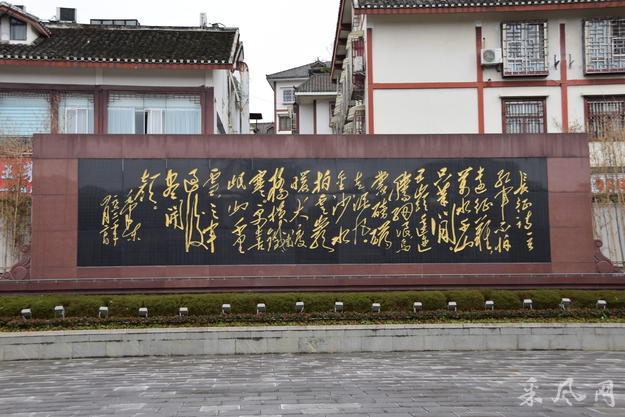 长征诗一首
红军不怕
远征难
万水千山
只等闲
五岭逶迤
腾细浪乌
蒙磅礴
走泥丸
金沙水
拍云崖
暖大渡
桥横铁索
寒更喜
岷山千里
雪三军
过后
尽开
颜
毛泽东
采风网